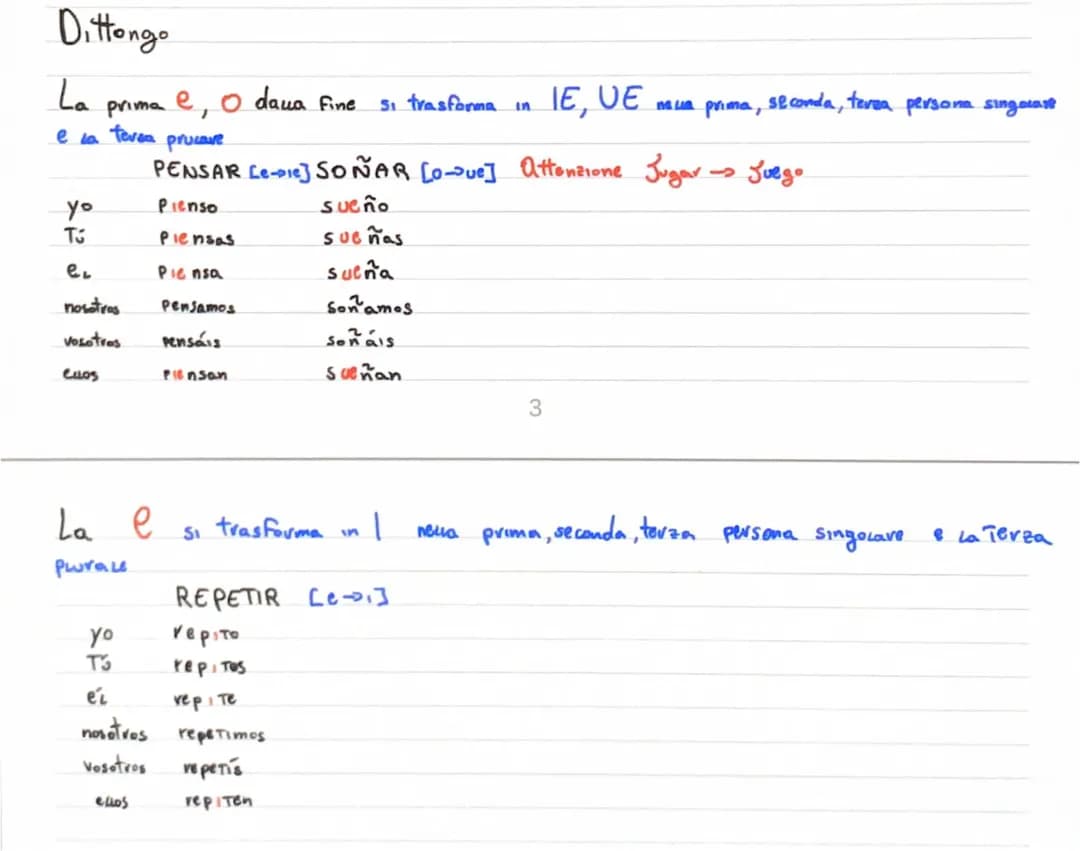 Dittongo
La prima e, o dalla fine si trasforma in IE, UE nella prima, seconda, terza persona singolare
e la terza plurale
PENSAR [e→ie] SOÑAR [o→ue] Attenzione Jugar → Juego
yo Pienso sueño
Tú Piensas sueñas
el Piensa sueña
nosotros Pensamos Soñamos
vosotros pensáis soñáis
ellos piensan sueñan
3
La e si trasforma in I nella prima, seconda, terza persona singolare e la Terza
plurale
REPETIR [e→i]
yo repito
Tú repites
él repite
nosotros repetimos
Vosotros repetís
ellos repiten